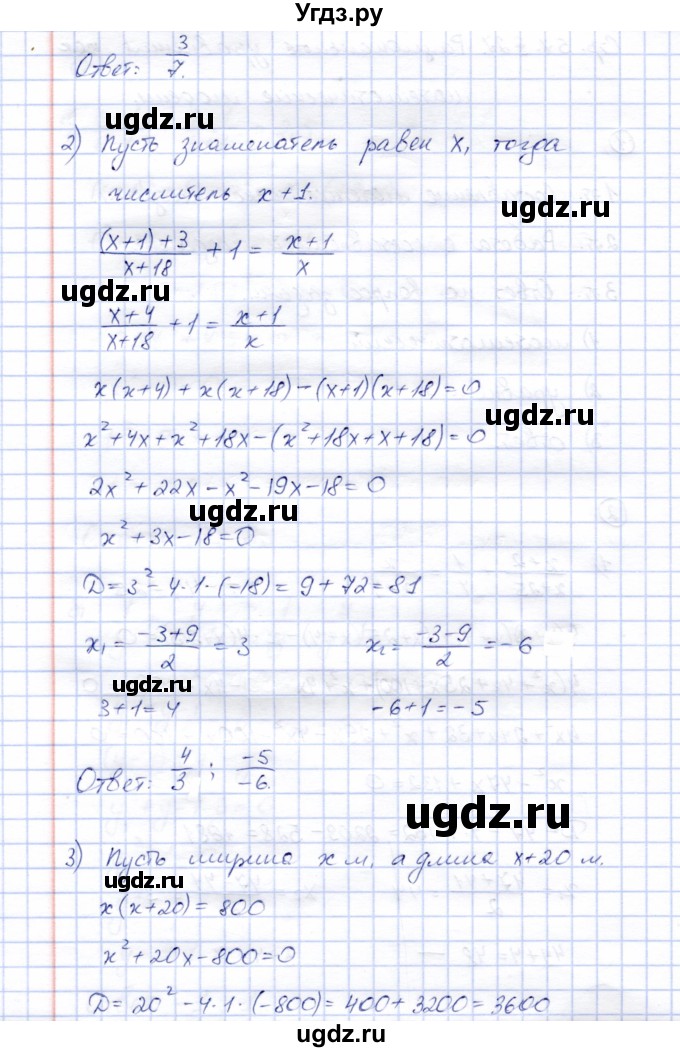 Угдз.ру
Ответ: 3/7.
ugdz.ru
2) Пусть знаменатель равен x, тогда
числитель x+1.
ugdz.ru
((x+1)+3)/(x+18) + 1 = (x+1)/x
ugdz.ru
(x+4)/(x+18) + 1 = (x+1)/x
x(x+4) + x(x+18) - (x+1)(x+18) = 0
ugdz.ru
x²+4x+x²+18x-(x²+18x+x+18)=0
2x²+22x-x²-19x-18=0
ugdz.ru
x²+3x-18=0
D=3²-4·1·(-18)=9+72=81
x₁=(-3+9)/2=3 x₂=(-3-9)/2=-6
ugdz.ru
3+1=4 -6+1=-5
Ответ: 4/3; -5/-6.
ugdz.ru
3) Пусть ширина x м, а длина x+20 м.
ugdz.ru
x(x+20)=800
x²+20x-800=0
D=20²-4·1·(-800)=400+3200=3600
ugdz.ru
ugdz.ru